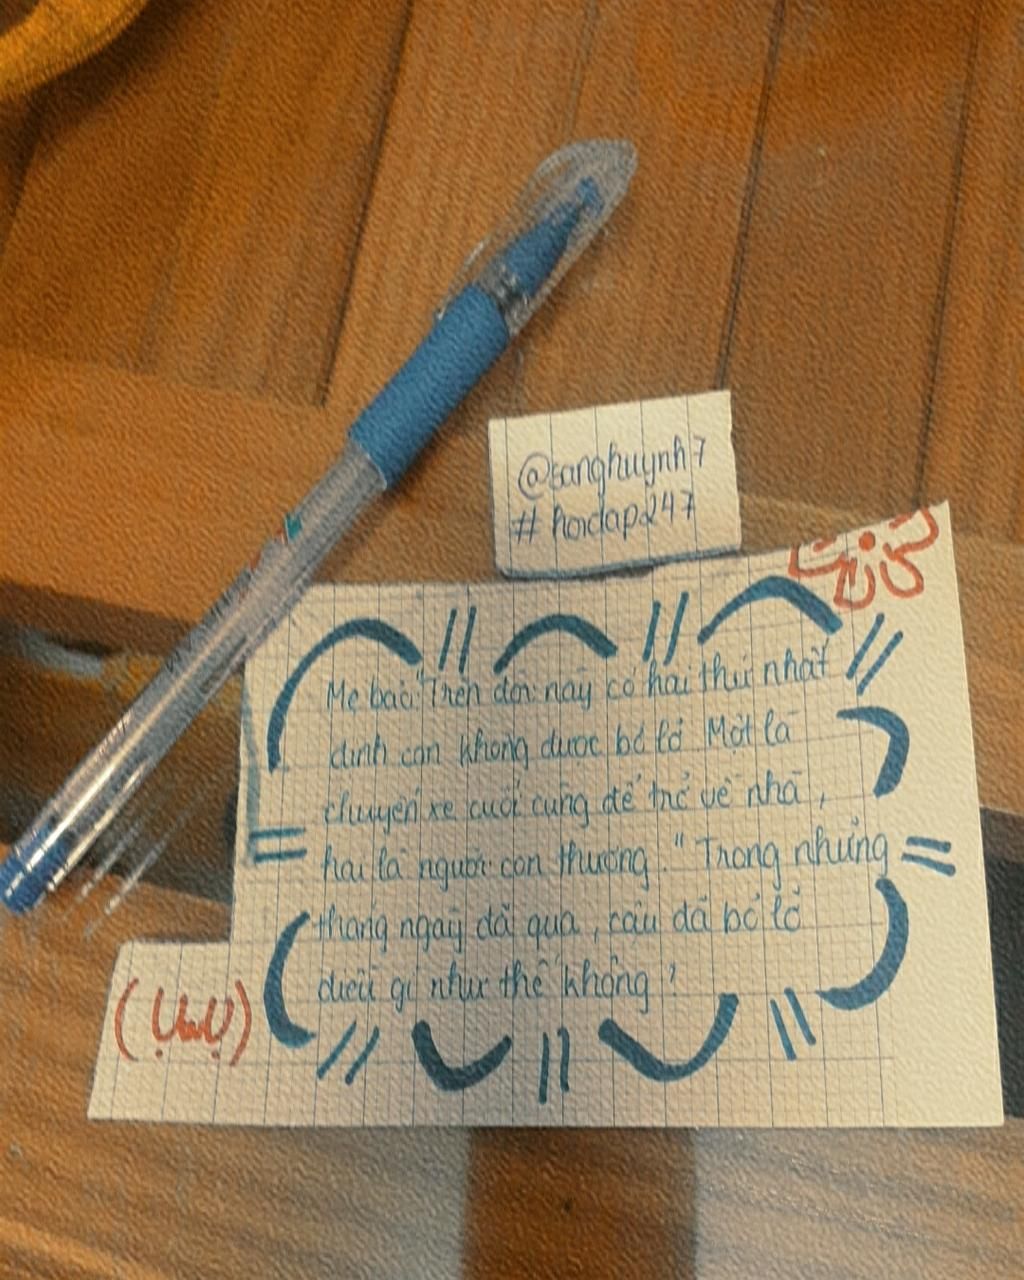 @sanghuynh7
# hoidap247
Mẹ bảo "Trên đời này có hai thứ nhất
định con không được bỏ lỡ Một là
chuyến xe cuối cùng để trở về nhà,
hai là người con thương." Trong những
tháng ngày đã qua, cậu đã bỏ lỡ
điều gì như thế không?
(ụwụ)